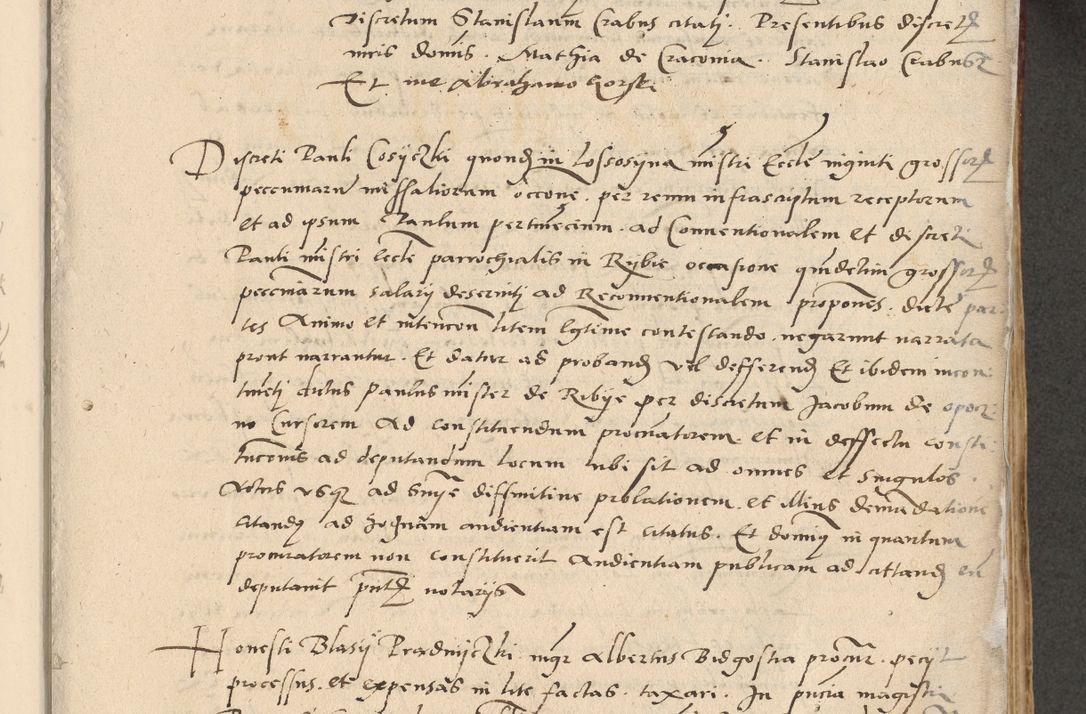 discretum Stanislaum Crabus citatj. Presentibus discret
viris domis. Mathia de Cracovia. Stanislao Crabus
Et me Abrahamo Gorski
Discreti Pauli Cosyczki quond in Lossosyna mistri Eccle viginti grossor
peccuniaru missaliorum occone. per reum infrascriptum receptorum
et ad ipsum Paulum pertinecium. ad Conventionalem et discreti
Pauli mistri Eccle parrochialis in Rybie occasione quindecim grossor
pecuniarum salarij deserviti ad Reconventionalem propones. dicte par
tes Animo et intencon litem lgtime contestando. negarunt narrata
prout narrantur. Et datur ad proband vel defferend Et ibidem in con
tineti dictus Paulus mister de Ribye per discretum Jacobum de opocz
no Cursorem Ad constituendum procuratorem et in deffectu consti
tucionis ad deputandum locum ubi sit ad omnes et singulos
Actus usq ad snie diffinitive prolationem et illius demandatione
citandus ad hodiernam audientiam est citatus. Et dominus in quantum
procuratorem non constituerit Audientiam publicam ad cittand eu
deputavit pntibus notarijs
Honesti Blasij Pradnyczki mgr Albertus Bidgostia procur. pecijt
processus. et expensas in lite factas. taxari. In pncia magistri